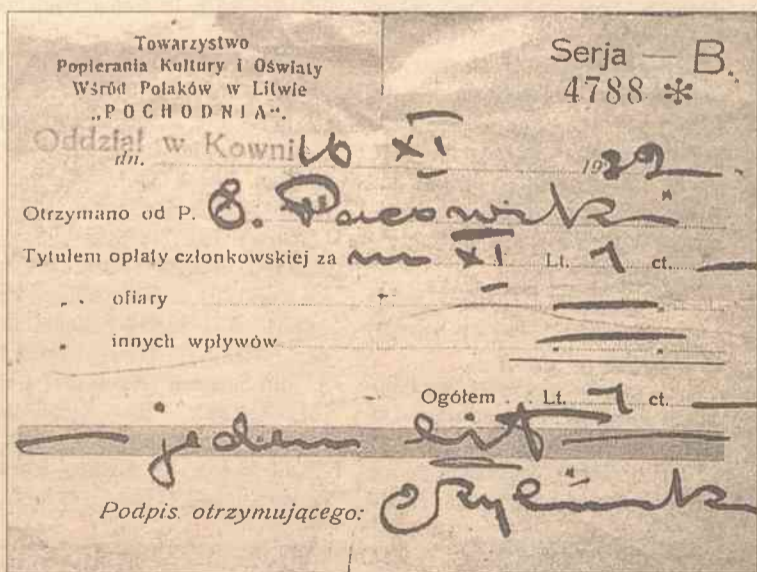 Towarzystwo
Popierania Kultury i Oświaty
Wśród Polaków w Litwie
„POCHODNIA“.
Serja — B.
4788 *
Oddział w Kowni
dn. 16 XI 19
Otrzymano od P. E.
Tytułem opłaty członkowskiej za m XI Lt. 1 ct. —
„ . ofiary —
„ innych wpływów —
Ogółem Lt. 1 ct. —
— jeden lit —
Podpis otrzymującego: